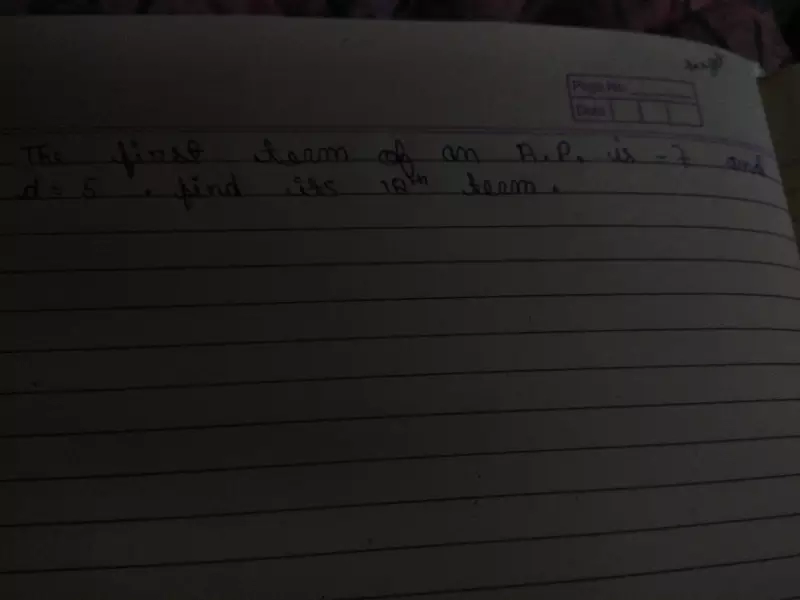 Page No.
Date
The first term of an A.P. is -7 and
d = 5 . find its 18th term.